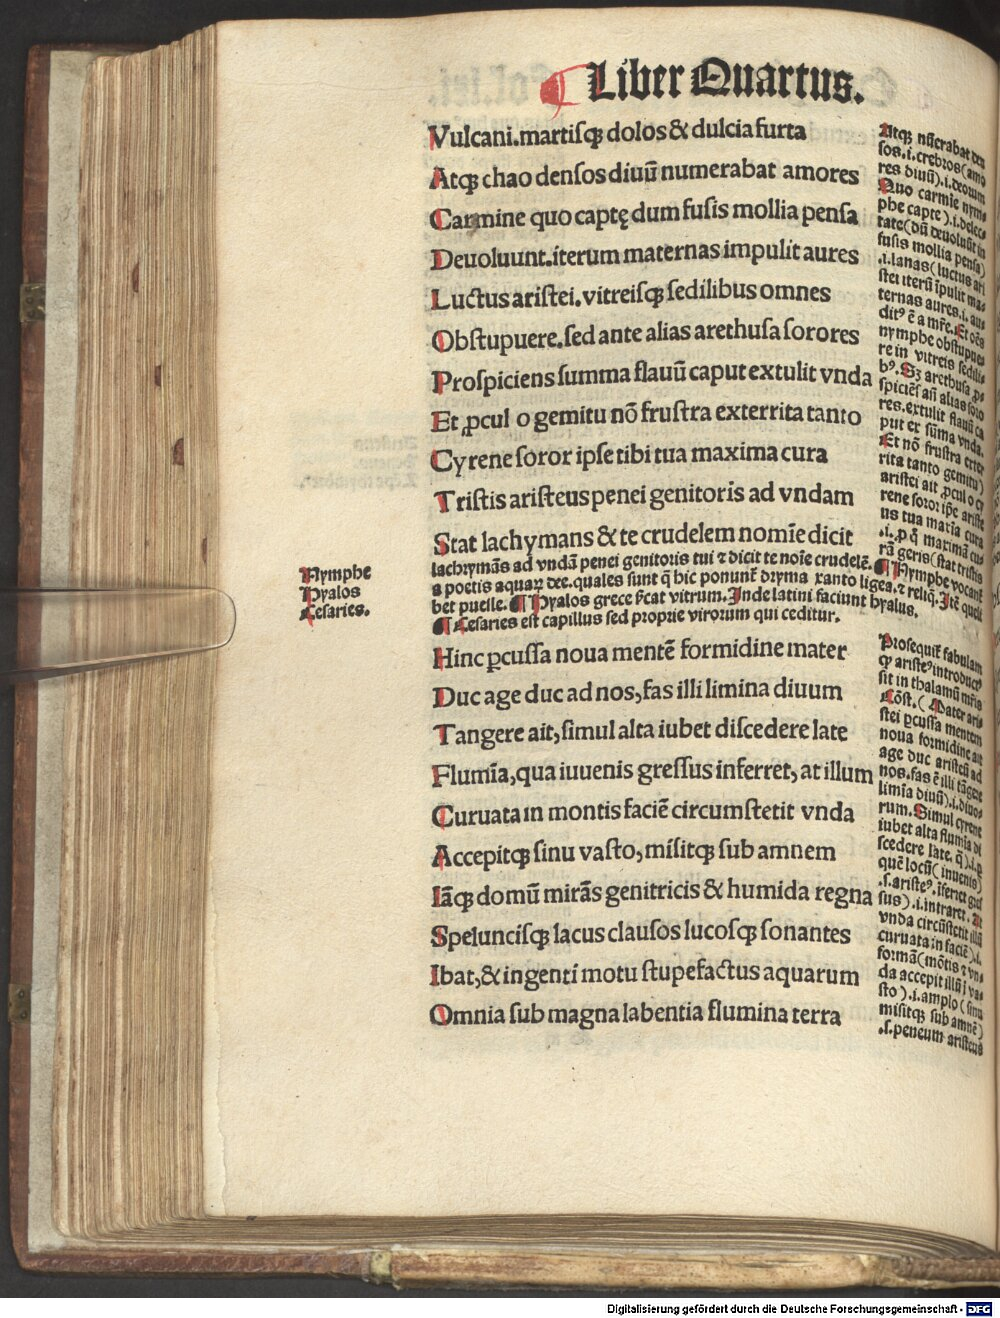 Liber Quartus.
Vulcani.martisqꝫ dolos & dulcia furta
Atqꝫ chao densos diuuũ numerabat amores
Carmine quo captę dum fusis mollia pensa
Deuoluunt.iterum maternas impulit aures
Luctus aristei.vitreisqꝫ sedilibus omnes
Obstupuere.sed ante alias arethusa sorores
Prospiciens summa flauũ caput extulit vnda
Et ꝓcul o gemitu nõ frustra exterrita tanto
Cyrene soror ipse tibi tua maxima cura
Tristis aristeus penei genitoris ad vndam
Stat lachymans & te crudelem nomĩe dicit
lachrymãs ad vndã penei genitoris tui ⁊ dicit te noĩe crudelẽ. ¶ Nymphe vocant̃
a poetis aquaꝝ dee.quales sunt q̃ hic ponunt̃ dryma xanto ligea.⁊ reliq̃.Itẽ queli
bet puelle. ¶ Hyalos grece s̃cat vitrum.Inde latini faciunt hyalus.
¶ Cesaries est capillus sed proprie virorum qui ceditur.
Nymphe
Hyalos
Cesaries.
Hinc ꝑcussa noua mentẽ formidine mater
Duc age duc ad nos, fas illi limina diuum
Tangere ait, simul alta iubet discedere late
Flumĩa, qua iuuenis gressus inferret, at illum
Curuata in montis faciẽ circumstetit vnda
Accepitqꝫ sinu vasto, misitqꝫ sub amnem
Iãqꝫ domũ mirãs genitricis & humida regna
Speluncisqꝫ lacus clausos lucosqꝫ sonantes
Ibat, & ingenti motu stupefactus aquarum
Omnia sub magna labentia flumina terra
Atqꝫ nũerabat den
sos.i.crebros (amo
res diuũ).i.deorum
Quo carmĩe nym
phe capte).i.delec
tate (dũ deuoluũt in
fusis mollia pensa)
.i.lanas (luctus ari
stei iterũ ĩpulit ma
ternas aures.i.au
ditꝰ ẽ a mr̃e.Et oẽs
nymphe obstupue
re in vitreis sedili
bꝰ.Sꝫ arethusa ꝓ
spiciẽs añ alias soro
res.extulit flauũ ca
put ex sũma vnda.
Et nõ frustra exter
rita tanto gemitu)
aristei ait ꝓcul o cy
rene soror ip̃e ariste
us tua maxĩa cura
.i.ꝓ q̃ maximã cu
rã geris (stat tristis
Prosequit̃ fabulam
qꝫ aristeꝰ introduct
sit in thalamũ mr̃is
Cõst. (Mater aris
stei ꝑcussa mentem
noua formidine ait
age duc aristeũ ad
nos.fas ẽ illi tãgere
limĩa diuũ).i.diuo
rum.Simul cyrene
iubet alta flumĩa di
scedere late. q̃).i.ꝑ
quẽ locũ (iuuenis)
.s.aristeꝰ.ĩferret gres
sus).i.intraret. At
vnda circũstetit illũ
curuata in faciẽ).i.
formã (mõtis ⁊ vn
da accepit illũ ĩ va
sto).i.amplo (sinu
misitqꝫ sub amnẽ)
.s.peneum aristeus
Digitalisierung gefördert durch die Deutsche Forschungsgemeinschaft - DFG